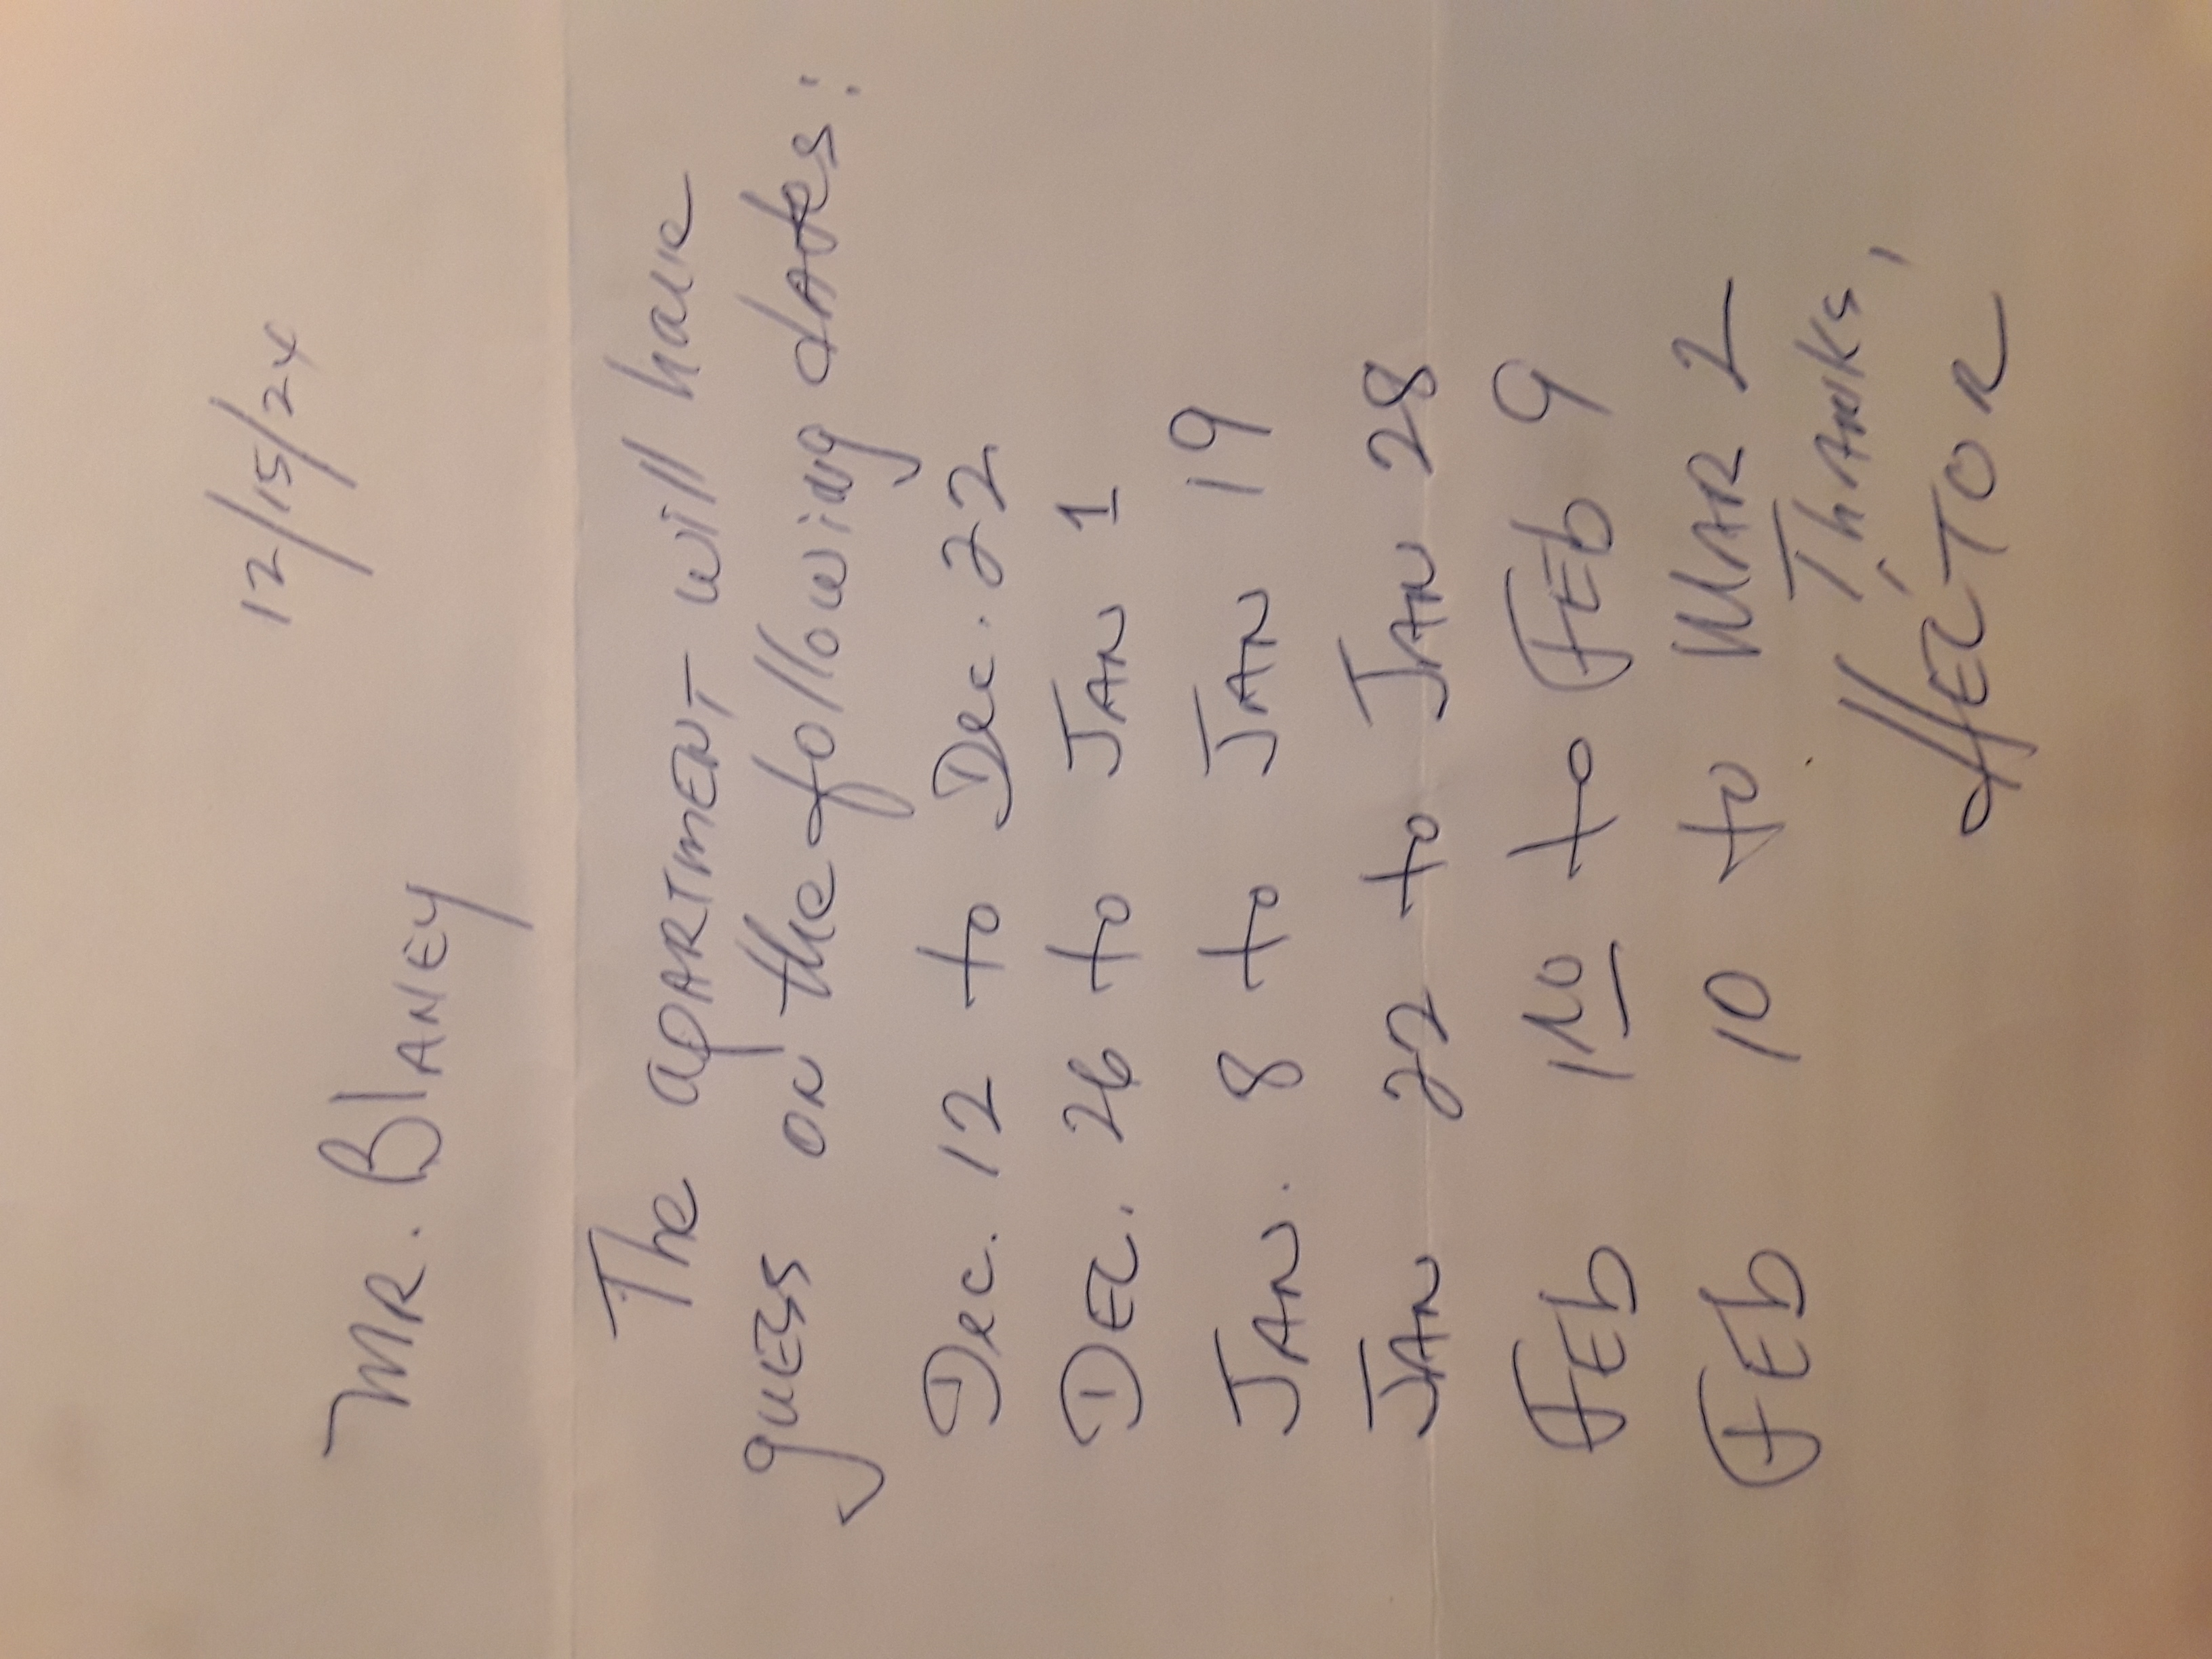 12/15/24
MR. BLANEY
The apARTMENT will have
guESS ON the following dATES:
Dec. 12 to Dec. 22
DEC. 26 to JAN 1
JAN. 8 to JAN 19
JAN 22 to JAN 28
FEb 1RO to FEb 9
FEb 10 to MAR 2
ThANKS,
HECTOR